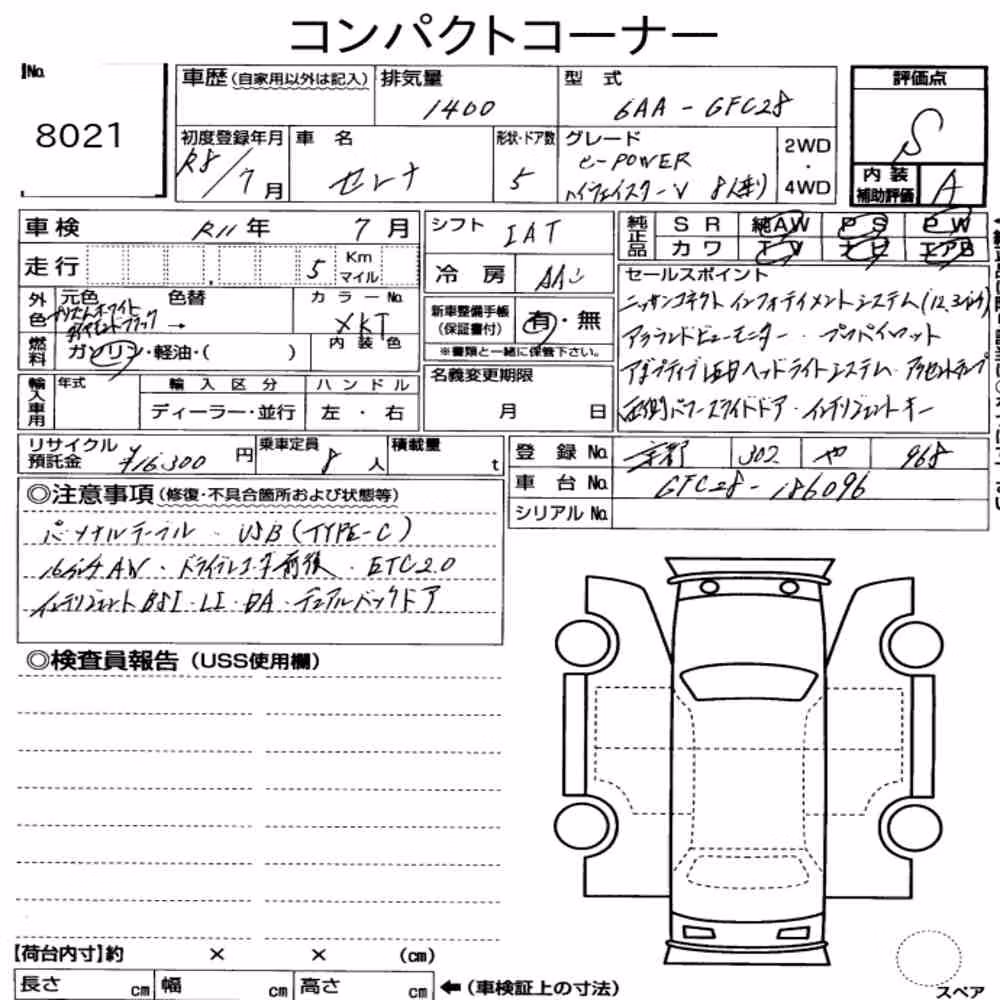 コンパクトコーナー
No.
8021
車歴(自家用以外は記入)
排気量
1400
型 式
6AA-GFC28
評価点
S
初度登録年月
R8/7月
車 名
セレナ
形状・ドア数
5
グレード
e-POWER
ハイウェイスターV 8人乗り
2WD
・
4WD
内 装
補助評価
A
車検
R11年 7月
シフト
IAT
純正品
SR 純AW PS PW
カワ TV ナビ エアB
走行
5
Km
マイル
冷 房
AAC
セールスポイント
ニッサンコネクト インフォテイメントシステム(12.3インチ)
アラウンドビューモニター・プロパイロット
アダプティブLEDヘッドライトシステム・アクセントランプ
両側パワースライドドア・インテリジェントキー
外色
元色 色替
プリズムホワイト
ダイヤモンドブラック →
カラーNo.
XKT
新車整備手帳
(保証書付)
有・無
※書類と一緒に保管下さい。
燃料
ガソリン・軽油・( )
内装色
輸入車用
年式
輸入区分
ディーラー・並行
ハンドル
左・右
名義変更期限
月 日
リサイクル
預託金
¥16,300円
乗車定員
8人
積載量
t
登 録 No.
京都 302 や 968
車 台 No.
GFC28-186096
シリアル No.
◎注意事項(修復・不具合箇所および状態等)
パーソナルテーブル・USB(TYPE-C)
16インチAW・ドライブレコーダー前後・ETC2.0
インテリジェントBSI・LI・DA・デュアルバックドア
◎検査員報告(USS使用欄)
【荷台内寸】約 × × (cm)
長さ cm 幅 cm 高さ cm
←(車検証上の寸法)
スペア